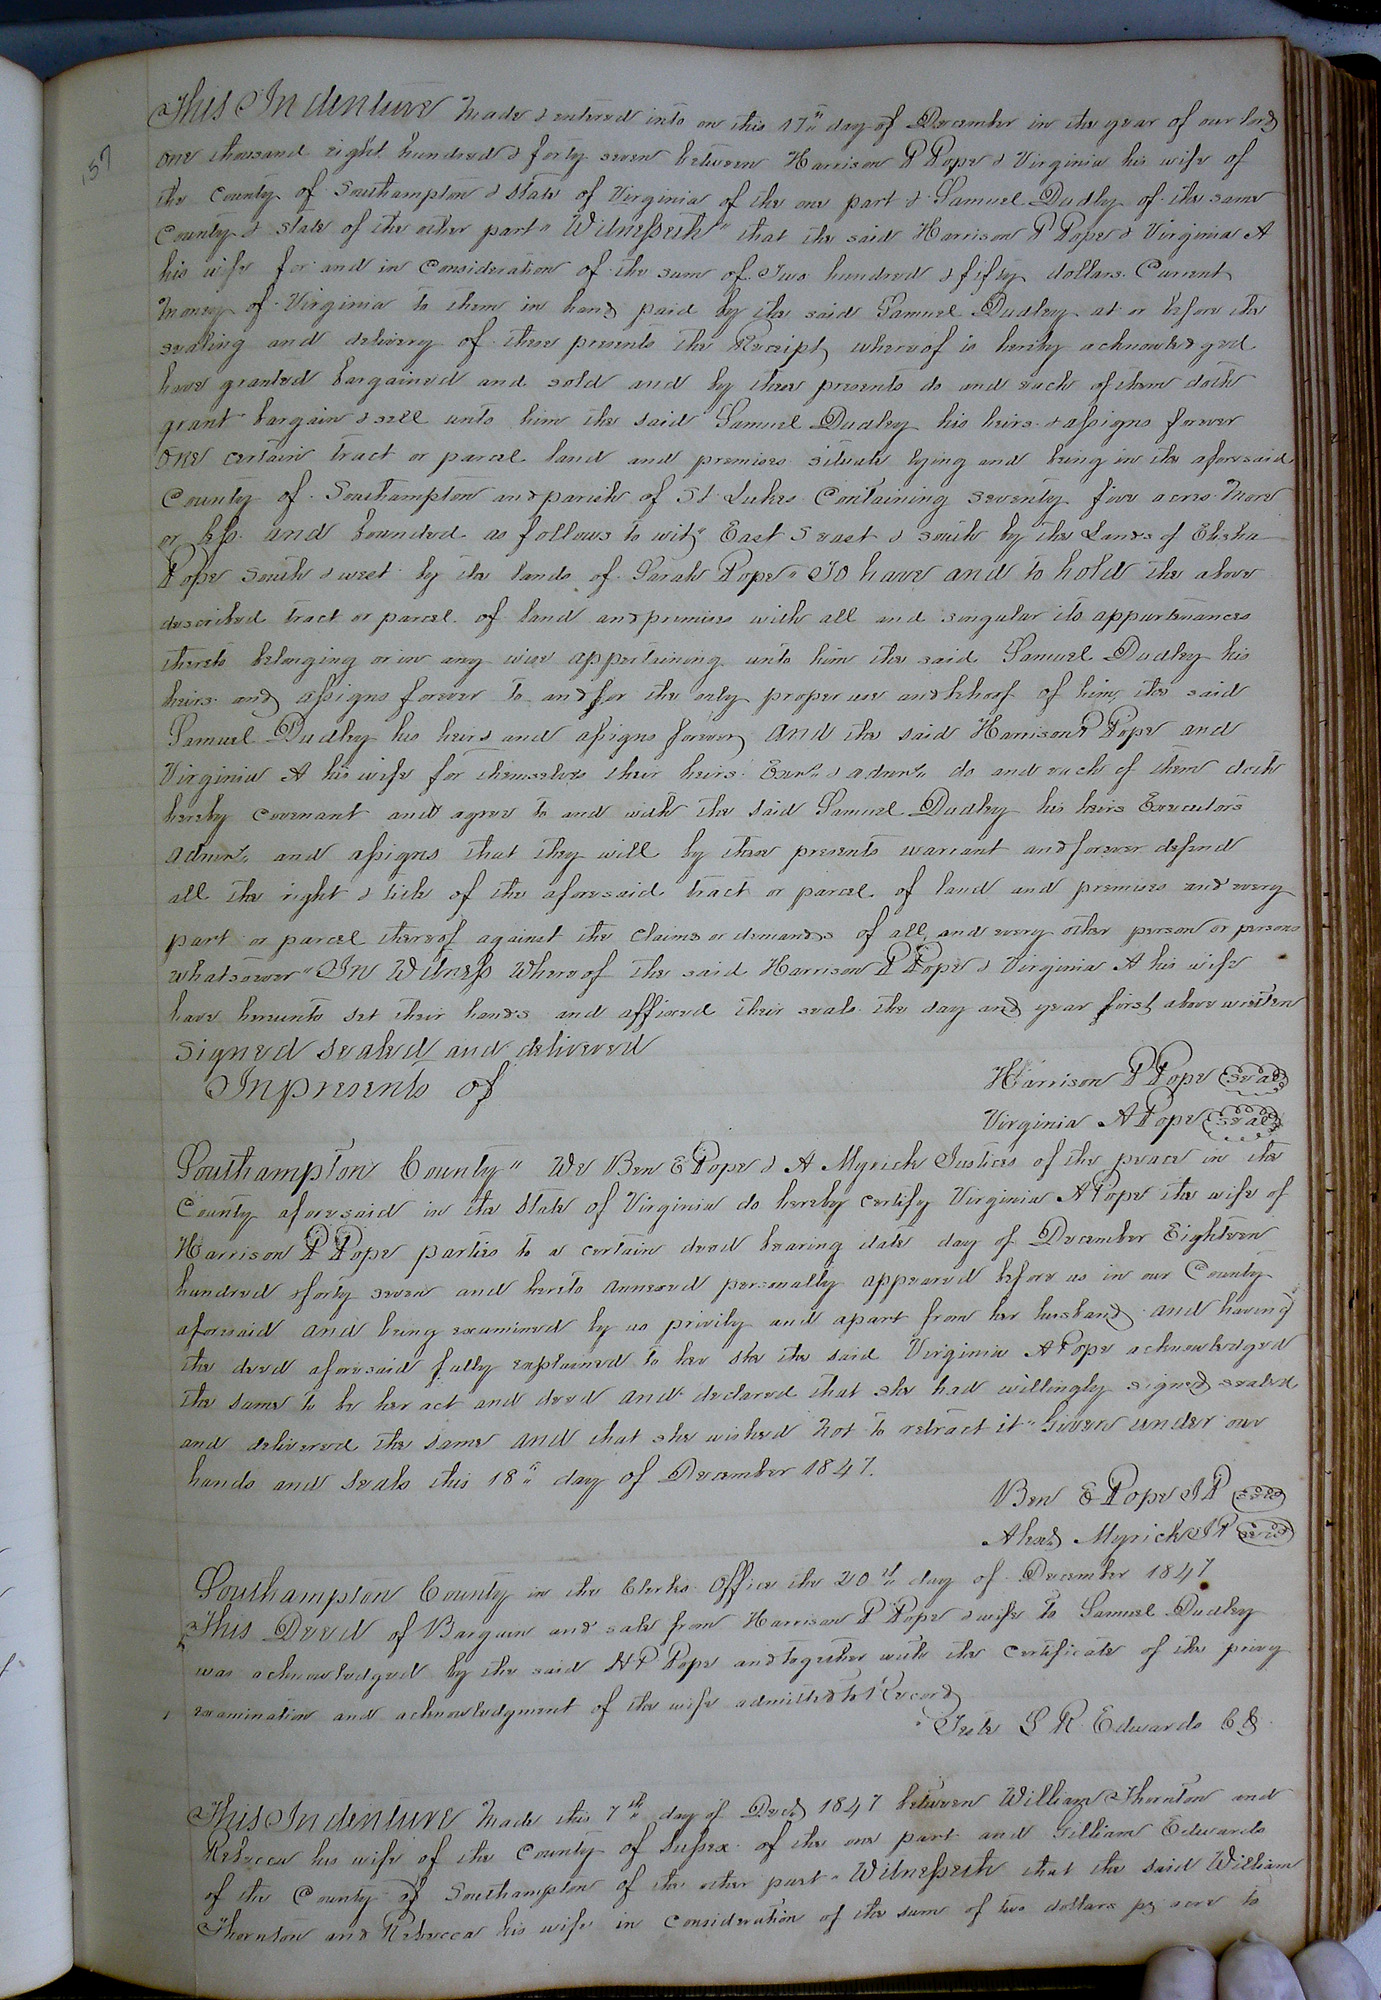 157
This Indenture Made & entered into on this 17th day of December in the year of our lord
one thousand eight hundred & forty seven between Harrison P Pope & Virginia his wife of
the County of Southampton & State of Virginia of the one part & Samuel Dudley of the same
County & State of the other part "Witnesseth" that the said Harrison P Pope & Virginia A
his wife for and in Consideration of the sum of Two hundred & fifty dollars Current
Money of Virginia to them in hand paid by the said Samuel Dudley at or before the
sealing and delivery of these presents the Receipt whereof is hereby acknowledged
have granted bargained and sold and by these presents do and each of them doth
grant bargain & sell unto him the said Samuel Dudley his heirs & assigns forever
One certain tract or parcel land and premises situate lying and being in the aforesaid
County of Southampton and parish of St Lukes Containing seventy five acres More
or less and bounded as follows to wit, East S east & south by the Lands of Elisha
Pope South & west by the lands of Sarah Pope " To have and to hold the above
described tract or parcel of land and premises with all and singular its appurtenances
thereto belonging or in any wise appertaining unto him the said Samuel Dudley his
heirs and assigns forever to and for the only proper use and behoof of him, the said
Samuel Dudley his heirs and assigns forever, And the said Harrison P Pope and
Virginia A his wife for themselves their heirs Exors & admrs do and each of them doth
hereby covenant and agree to and with the said Samuel Dudley his heirs Executors
admrs and assigns that they will by these presents warrant and forever defend
all the right & title of the aforesaid tract or parcel of land and premises and every
part or parcel thereof against the Claims or demands of all and every other person or persons
whatsoever " In Witness Whereof the said Harrison P Pope & Virginia A his wife
have hereunto set their hands and affixed their seals the day and year first above written
Signed sealed and delivered
In presents of
Harrison P Pope seal
Virginia A Pope seal
Southampton County " We Ben E Pope & A Myrick Justices of the peace in the
County aforesaid in the State of Virginia do hereby certify Virginia A Pope the wife of
Harrison P Pope parties to a certain deed bearing date day of December Eighteen
hundred & forty seven and hereto annexed personally appeared before us in our County
aforesaid and being examined by us privily and apart from her husband and having
the deed aforesaid fully explained to her she the said Virginia A Pope acknowledged
the same to be her act and deed and declared that she had willingly signed sealed
and delivered the same and that she wished not to retract it " Given under our
hands and Seals this 18th day of December 1847.
Ben E Pope JP seal
Myrick JP seal
Southampton County in the Clerks Office the 20th day of December 1847
This Deed of Bargain and sale from Harrison P Pope & wife to Samuel Dudley
was acknowledged by the said H P Pope and together with the Certificate of the privy
examination and acknowledgment of the wife admitted to Record
Teste L R Edwards CC
This Indenture Made this 7th day of Decr 1847 between William Thornton and
Rebecca his wife of the County of Sussex of the one part and Gilliam Edwards
of the County of Southampton of the other part " Witnesseth that the said William
Thornton and Rebecca his wife in Consideration of the sum of two dollars pr acre to